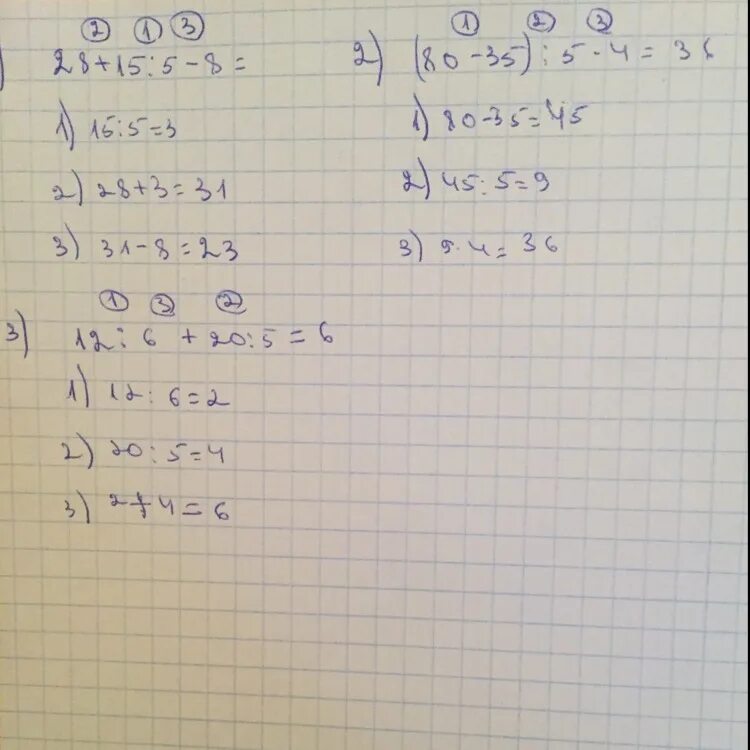 ② ① ③
) 28+15:5-8=
1) 15:5=3
2) 28+3=31
3) 31-8=23
① ② ③
2) (80-35):5·4=36
1) 80-35=45
2) 45:5=9
3) 9·4=36
① ③ ②
3) 12:6+20:5=6
1) 12:6=2
2) 20:5=4
3) 2+4=6